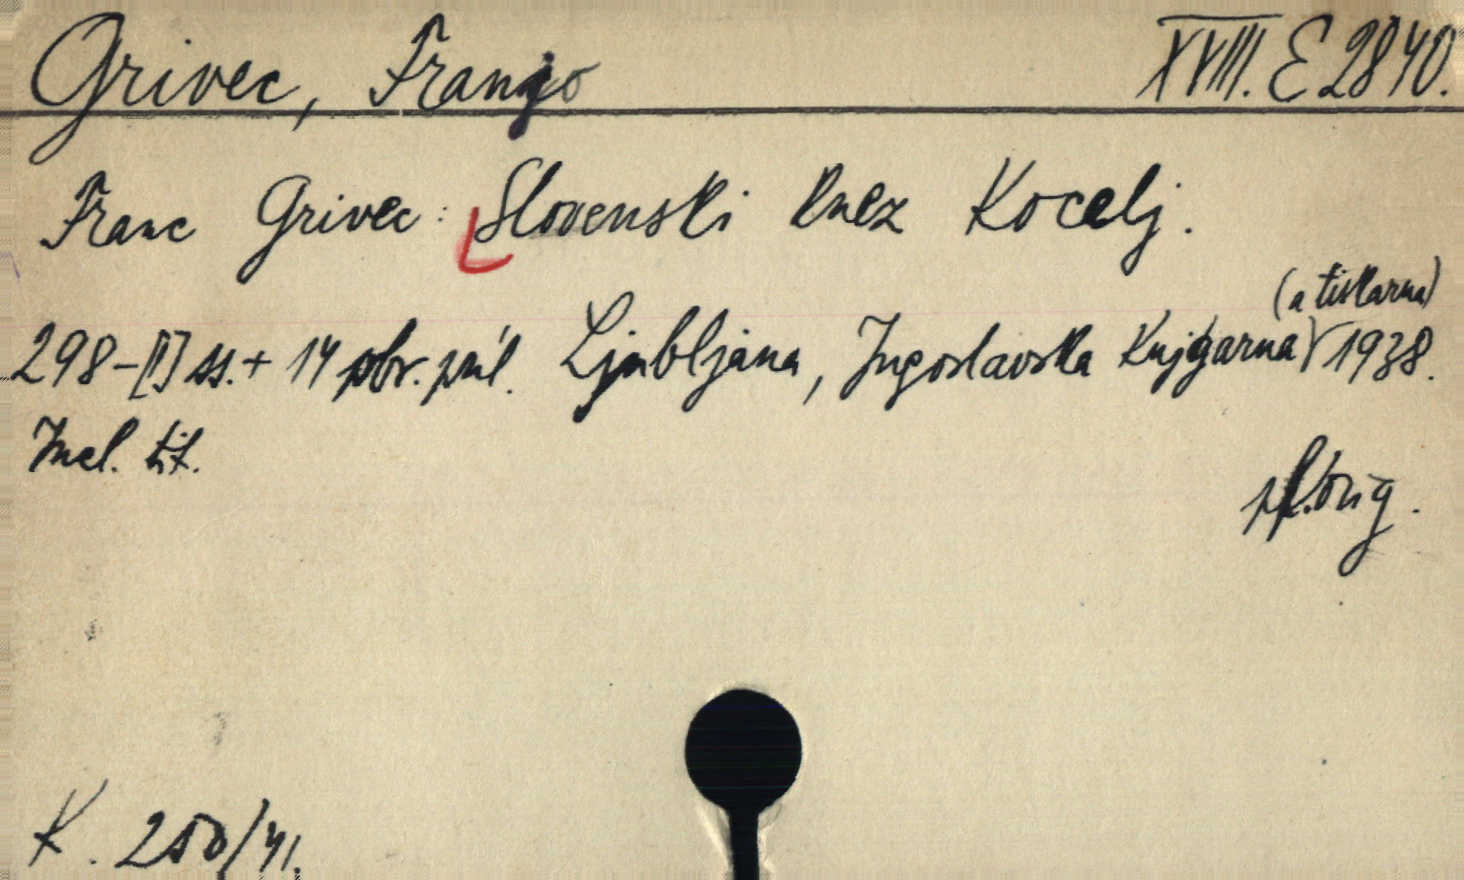 Grivec, Franjo XVIII. E 2840.
Franc Grivec: Slovenski knez Kocelj.
(a tiskarna)
298-[I] ss. + 14 obr. příl. Ljubljana, Jugoslavska Knjigarna 1938.
Incl. tit.
pk. orig.
K. 250/41.